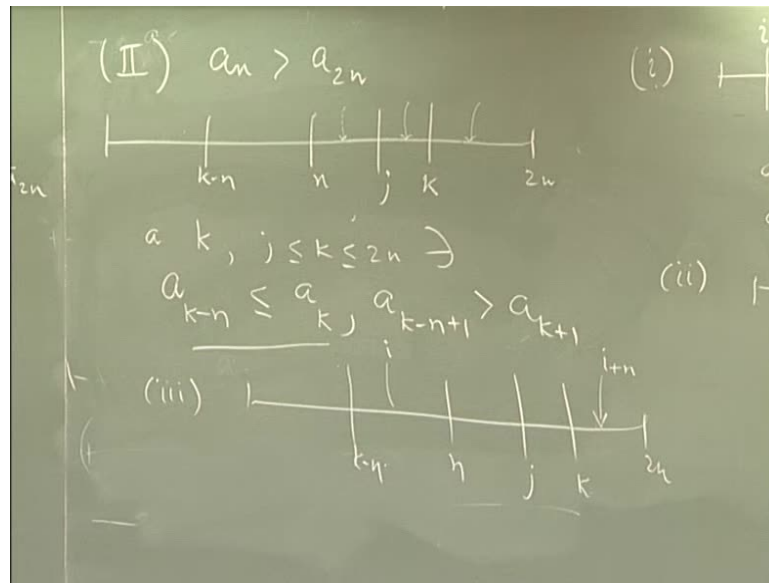 (II) aₙ > a₂ₙ
(i) i
k-n n j k 2n
2n
a k, j ≤ k ≤ 2n ∋
a_{k-n} ≤ a_k, a_{k-n+1} > a_{k+1}
(ii)
(iii) i i+n
k-n n j k 2n